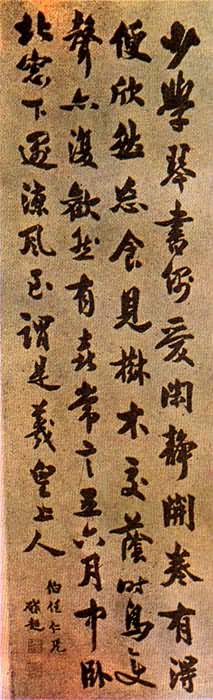 少學琴書偶愛閑靜開卷有得
便欣然忘食見樹木交蔭時鳥變
聲亦復歡然有喜常言五六月中臥
北窗下遇涼風至謂是羲皇上人
伯佳仁兄
啟超